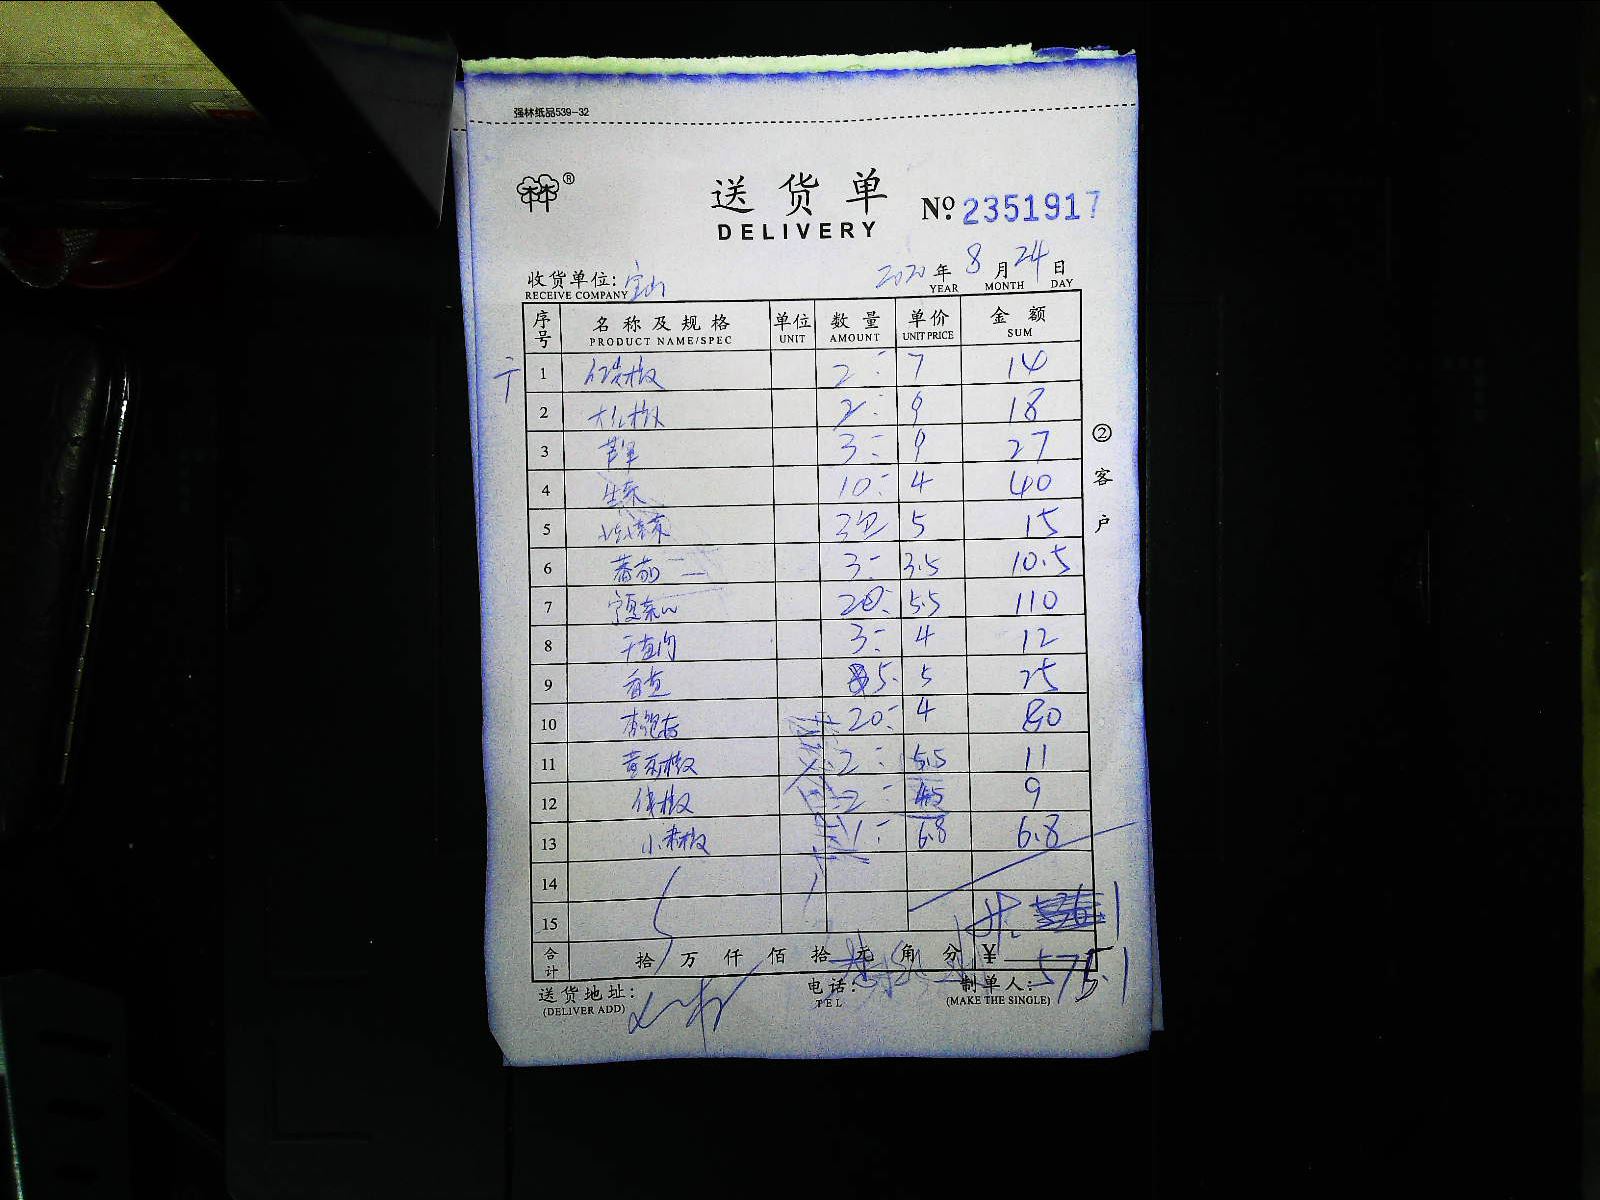 强林纸品539-32
® 送货单 № 2351917
DELIVERY
收货单位: 宝山 2020 年 8 月 24 日
RECEIVE COMPANY YEAR MONTH DAY
序号 名称及规格 单位 数量 单价 金额
PRODUCT NAME/SPEC UNIT AMOUNT UNIT PRICE SUM
1 2 7 14
2 大红椒 2 9 18
3 3 9 27
4 生菜 10 4 40
5 3包 5 15
6 番茄 3 3.5 10.5
7 宁夏菜心 20 5.5 110
8 3 4 12
9 香芹 5 5 25
10 杏鲍菇 20 4 80
11 黄彩椒 2 5.5 11
12 2 4.5 9
13 小米椒 1 6.8 6.8
14
15
合计 拾 万 仟 佰 拾 元 角 分 ¥ 575.1
送货地址: 电话: 制单人:
(DELIVER ADD) TEL (MAKE THE SINGLE)
② 客户